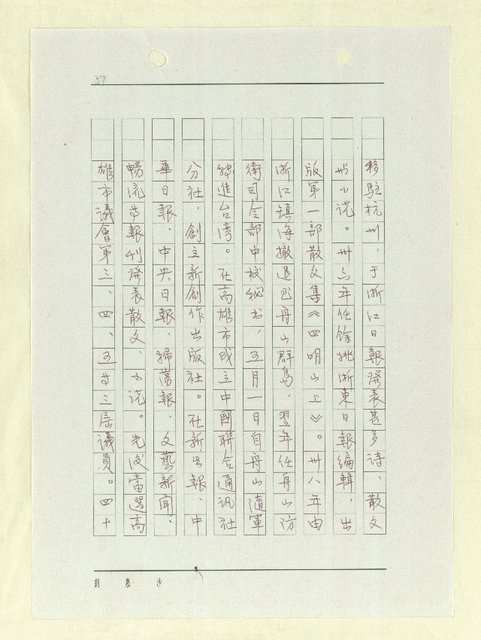 移駐杭州，于浙江日報發表甚多詩、散文
与小說。卅六年任餘姚浙東日報編輯，出
版第一部散文集《四明山上》。卅八年由
浙江鎮海撤退巴舟山群島，翌年任舟山防
衛司令部中校秘书，五月一日自舟山随軍
轉進台湾。在高雄市成立中國聯合通訊社
分社，創立新創作出版社。在新生報、中
華日報、中央日報、掃蕩報、文藝新聞、
暢流等報刊發表散文、小說。先後當選高
雄市議會第三、四、五等三屆議員。四十